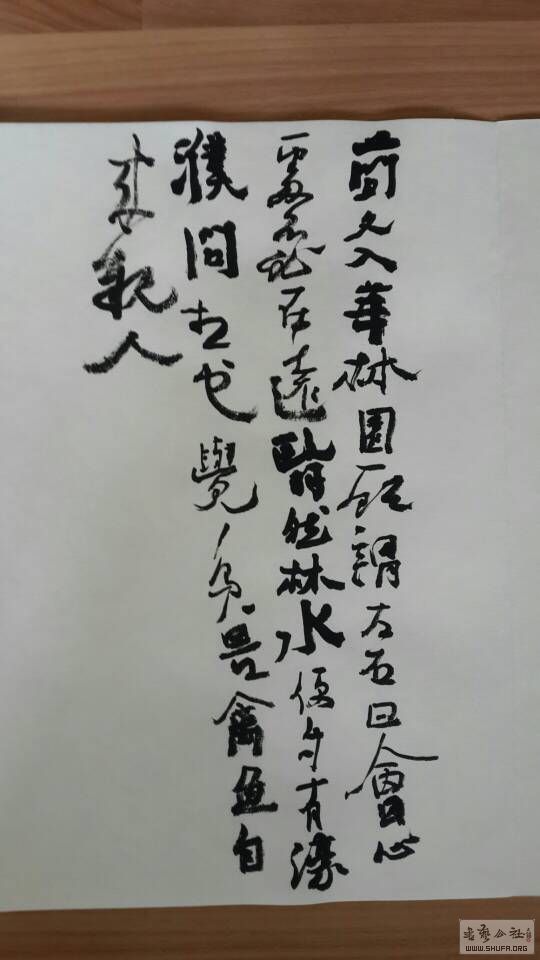 簡文入華林園顧謂左右曰會心
處不必在遠翳然林水便自有濠
濮間想也覺鳥獸禽魚自
來親人
书艺公社
WWW.SHUFA.ORG